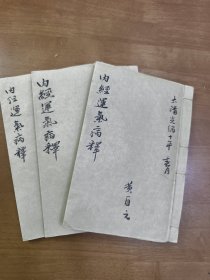 大清光緒十年
內經運氣病釋
黃自元
內經運氣病釋
內经運氣病釋